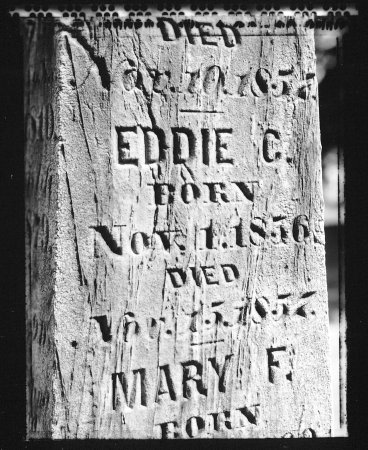 DIED
Nov. 10. 1857.
EDDIE C.
BORN
Nov. 1. 1856.
DIED
Nov. 15. 1857.
MARY F.
BORN